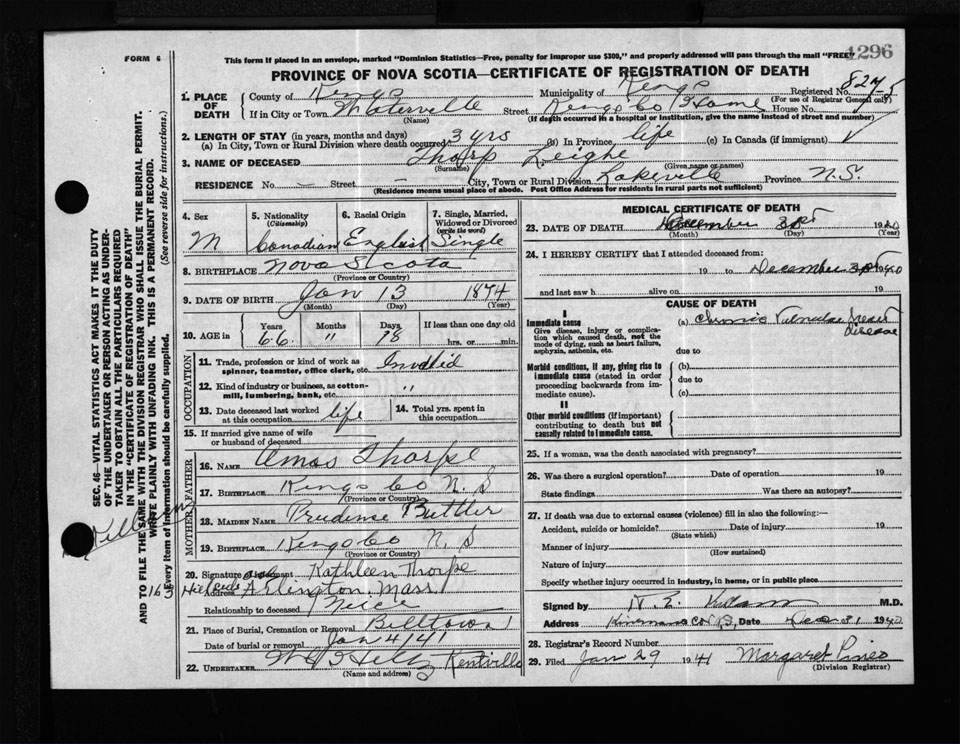 1296
FORM 6
This form if placed in an envelope, marked "Dominion Statistics—Free, penalty for improper use $300," and properly addressed will pass through the mail "FREE"
PROVINCE OF NOVA SCOTIA—CERTIFICATE OF REGISTRATION OF DEATH
1. PLACE OF DEATH
County of Kings Municipality of Kings Registered No. 827-5
(For use of Registrar General only)
If in City or Town Waterville Street Kings Co Home House No.
(Name) (If death occurred in a hospital or institution, give the name instead of street and number)
2. LENGTH OF STAY (in years, months and days)
(a) In City, Town or Rural Division where death occurred 3 yrs (b) In Province life (c) In Canada (if immigrant)
3. NAME OF DECEASED Thorp Leighe
(Surname) (Given name or names)
RESIDENCE No. — Street — City, Town or Rural Division Lakeville Province N.S.
(Residence means usual place of abode. Post Office Address for residents in rural parts not sufficient)
4. Sex M
5. Nationality (Citizenship) Canadian
6. Racial Origin English
7. Single, Married, Widowed or Divorced (write the word) Single
8. BIRTHPLACE Nova Scota
(Province or Country)
9. DATE OF BIRTH Jan 13 1874
(Month) (Day) (Year)
10. AGE in Years 66 Months " Days 18 If less than one day old hrs. or min.
OCCUPATION
11. Trade, profession or kind of work as spinner, teamster, office clerk, etc. Invalid
12. Kind of industry or business, as cotton-mill, lumbering, bank, etc. "
13. Date deceased last worked at this occupation life
14. Total yrs. spent in this occupation
15. If married give name of wife or husband of deceased
FATHER
16. NAME Amos Thorpe
17. BIRTHPLACE Kings Co N.S
(Province or Country)
MOTHER
18. MAIDEN NAME Prudense Butler
19. BIRTHPLACE Kings Co N.S
(Province or Country)
20. Signature of Informant Kathleen Thorpe
Address Arlington, Mass
Relationship to deceased Neice
21. Place of Burial, Cremation or Removal Billtown
Date of burial or removal Jan 4/41
22. UNDERTAKER Kentville
(Name and address)
MEDICAL CERTIFICATE OF DEATH
23. DATE OF DEATH December 31 1940
(Month) (Day)
24. I HEREBY CERTIFY that I attended deceased from:
19 to December 31 1940
and last saw h alive on 19
CAUSE OF DEATH
I
Immediate cause
Give disease, injury or complication which caused death, not the mode of dying, such as heart failure, asphyxia, asthenia, etc.
(a) Chronic Valvular Heart disease
due to
Morbid conditions, if any, giving rise to immediate cause (stated in order proceeding backwards from immediate cause).
(b)
due to
(c)
II
Other morbid conditions (if important) contributing to death but not causally related to immediate cause.
25. If a woman, was the death associated with pregnancy?
26. Was there a surgical operation? Date of operation 19
State findings Was there an autopsy?
27. If death was due to external causes (violence) fill in also the following:—
Accident, suicide or homicide? Date of injury 19
(State which)
Manner of injury
(How sustained)
Nature of injury
Specify whether injury occurred in industry, in home, or in public place
Signed by M.D.
Address Date Dec 31 1940
28. Registrar's Record Number
29. Filed Jan 29 1941 Margaret Pineo
(Division Registrar)
SEC. 46—VITAL STATISTICS ACT MAKES IT THE DUTY
OF THE UNDERTAKER OR PERSON ACTING AS UNDER-
TAKER TO OBTAIN ALL THE PARTICULARS REQUIRED
IN THE "CERTIFICATE OF REGISTRATION OF DEATH"
AND TO FILE THE SAME WITH THE DIVISION REGISTRAR WHO SHALL ISSUE THE BURIAL PERMIT.
WRITE PLAINLY WITH UNFADING INK. THIS IS A PERMANENT RECORD.
Every item of information should be carefully supplied. (See reverse side for instructions.)